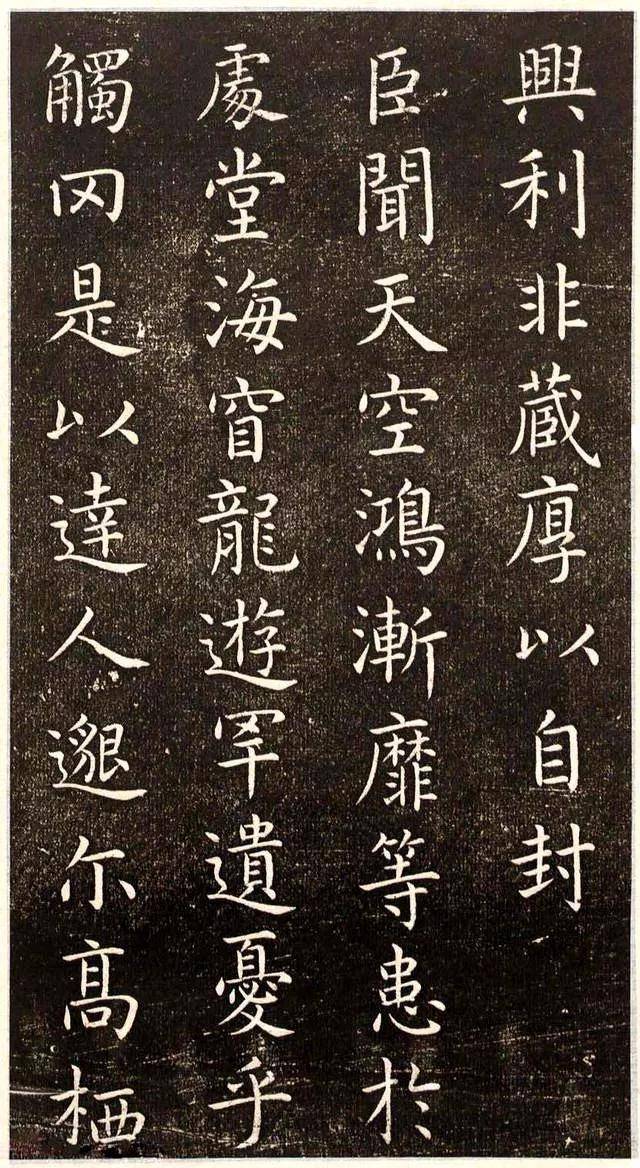 興利非蔵厚以自封
臣聞天空鴻漸靡等患於
處堂海窅龍遊罕遺憂乎
觸冈是以達人邈尓高栖